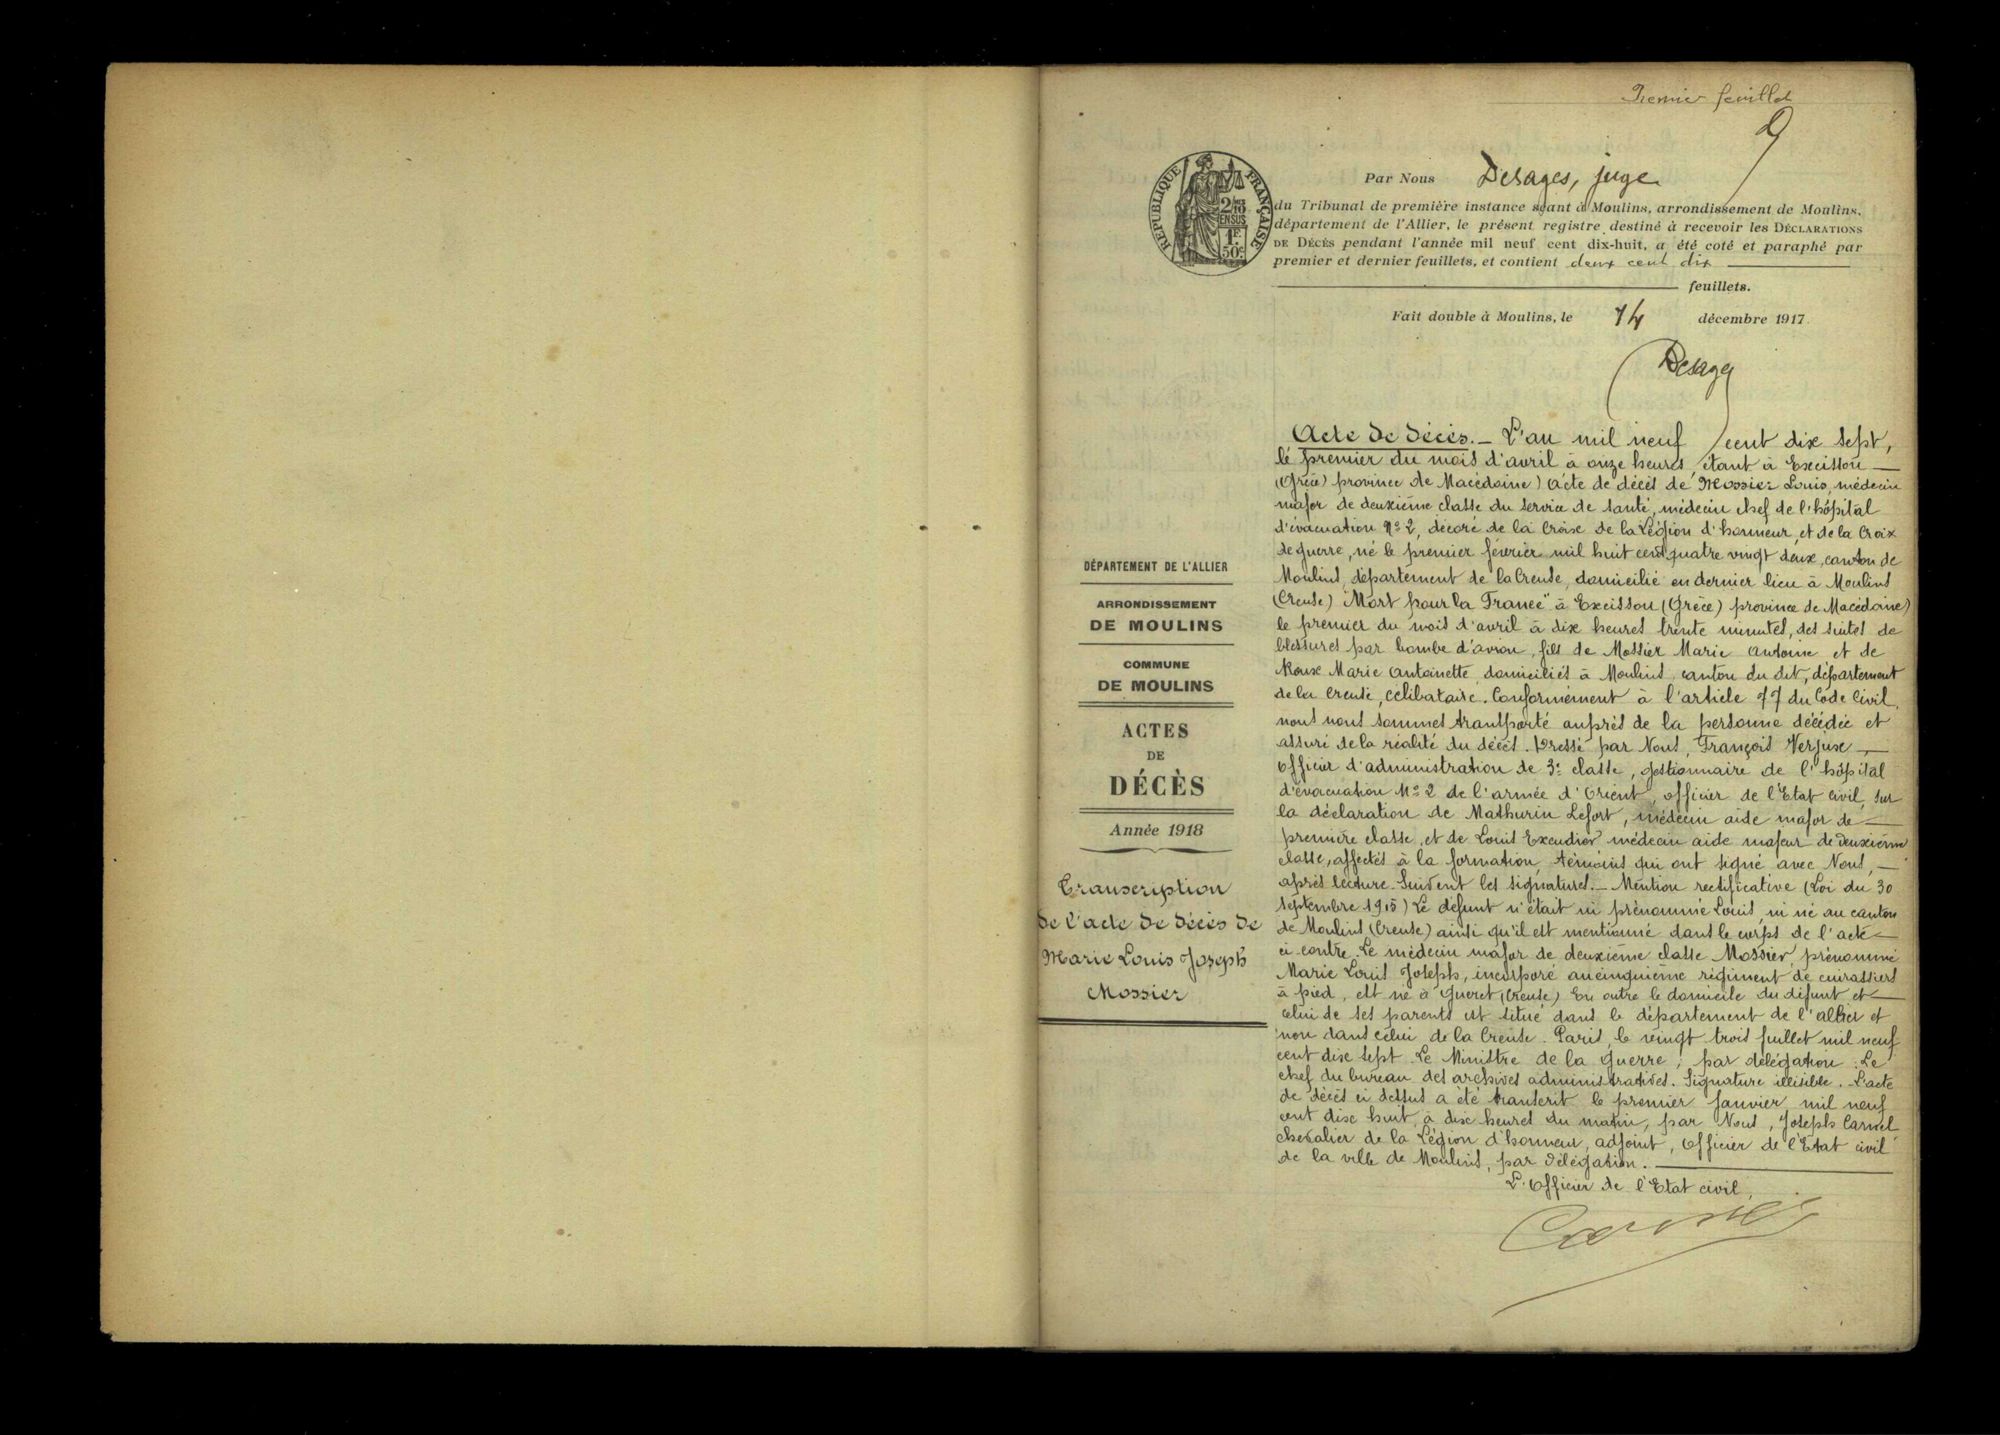 Premier feuillet
RÉPUBLIQUE FRANÇAISE
2/10
EN SUS
1F.
50c
Par Nous Desages, juge
du Tribunal de première instance séant à Moulins, arrondissement de Moulins,
département de l'Allier, le présent registre destiné à recevoir les DÉCLARATIONS
DE DÉCÈS pendant l'année mil neuf cent dix-huit, a été coté et paraphé par
premier et dernier feuillets, et contient deux cent dix
feuillets.
Fait double à Moulins, le 14 décembre 1917
Desages
DÉPARTEMENT DE L'ALLIER
ARRONDISSEMENT
DE MOULINS
COMMUNE
DE MOULINS
ACTES
DE
DÉCÈS
Année 1918
Transcription
de l'acte de décès de
Marie Louis Joseph
Mossier
Acte de décès. _ L'an mil neuf cent dix sept,
le premier du mois d'avril à onze heures, étant à Excissou
(Grèce) province de Macédoine) acte de décès de Mossier Louis, médecin
major de deuxième classe du service de santé, médecin chef de l'hôpital
d'évacuation No 2, décoré de la Croix de la Légion d'honneur, et de la Croix
de guerre, né le premier février mil huit cent quatre vingt deux, canton de
Moulins, département de la Creuse, domicilié en dernier lieu à Moulins
(Creuse) "Mort pour la France" à Excissou (Grèce) province de Macédoine)
le premier du mois d'avril à dix heures trente minutes, des suites de
blessures par bombe d'avion, fils de Mossier Marie Antoine et de
Roux Marie Antoinette, domiciliés à Moulins, canton du dit, département
de la Creuse, célibataire. Conformément à l'article 77 du Code Civil,
nous nous sommes transporté auprès de la personne décédée et
assuré de la réalité du décès. Dressé par Nous, François Verjux,
Officier d'administration de 3e classe, gestionnaire de l'hôpital
d'évacuation No 2 de l'armée d'Orient, officier de l'Etat civil, sur
la déclaration de Mathurin Lefort, médecin aide major de
première classe, et de Louis médecin aide majeur de deuxième
classe, affectés à la formation, témoins qui ont signé avec Nous,
après lecture. Suivent les signatures. _ Mention rectificative (Loi du 30
septembre 1915) Le défunt n'était ni prénommé Louis, ni né au canton
de Moulins (Creuse) ainsi qu'il est mentionné dans le corps de l'acte
ci contre. Le médecin major de deuxième classe Mossier, prénommé
Marie Louis Joseph, incorporé au cinquième régiment de cuirassiers
à pied, est né à Gueret (Creuse) En outre le domicile du défunt et
celui de ses parents est situé dans le département de l'allier et
non dans celui de la Creuse. Paris, le vingt trois juillet mil neuf
cent dix sept. Le Ministre de la Guerre, par délégation : Le
chef du bureau des archives administratives. Signature illisible. L'acte
de décès ci dessus a été transcrit le premier Janvier mil neuf
cent dix huit, à dix heures du matin, par Nous, Joseph Carnet
chevalier de la Légion d'honneur, adjoint, officier de l'Etat civil
de la ville de Moulins, par délégation.
L'officier de l'Etat civil,